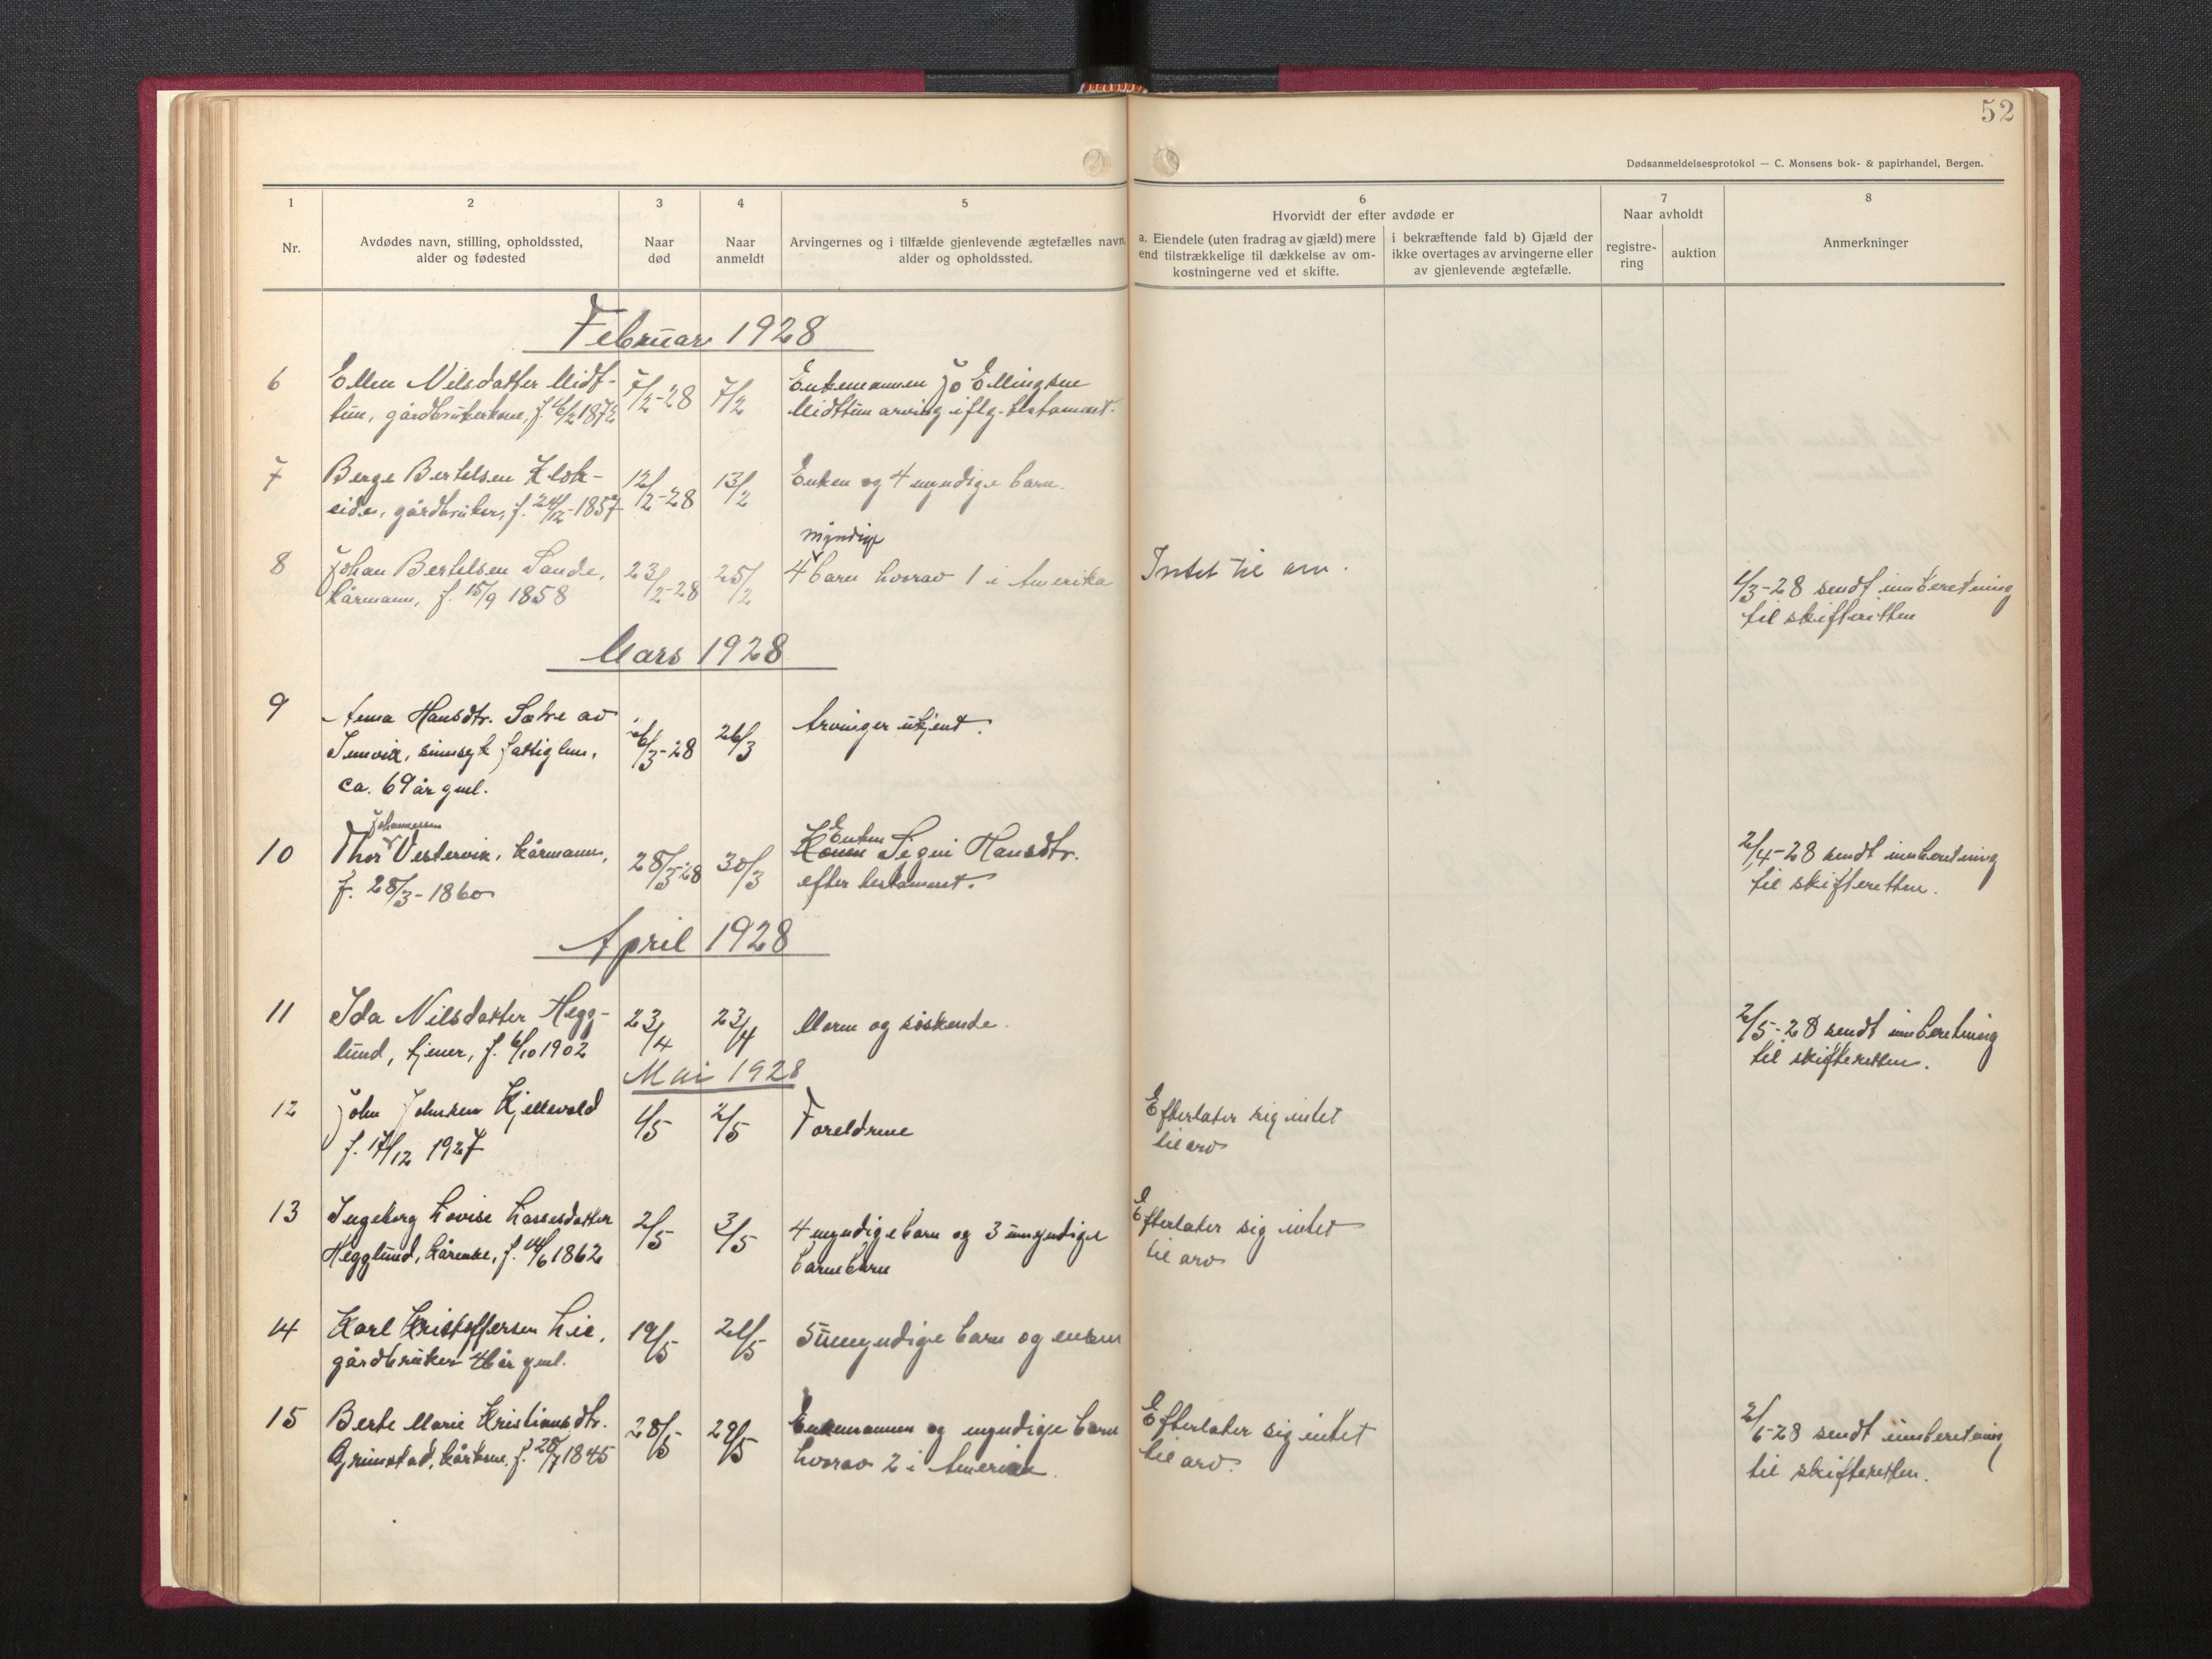 52
Dødsanmeldelsesprotokol — C. Monsens bok- & papirhandel, Bergen.
1 2 3 4 5 6 7 8
Nr.
Avdødes navn, stilling, opholdssted,
alder og fødested
Naar
død
Naar
anmeldt
Arvingernes og i tilfælde gjenlevende ægtefælles navn,
alder og opholdssted.
Hvorvidt der efter avdøde er
a. Eiendele (uten fradrag av gjæld) mere
end tilstrækkelige til dækkelse av om-
kostningerne ved et skifte.
i bekræftende fald b) Gjæld der
ikke overtages av arvingerne eller
av gjenlevende ægtefælle.
Naar avholdt
registre-
ring
auktion
Anmerkninger
Februar 1928
6 Ellen Nilsdatter Midt- 7/2-28 7/2 Enkemannen Jo Ellingsen
tun, gårdbrukerkone, f. 1872 Midttun arving iflg. testament.
7 Berge Bertelsen Klok- 12/2-28 13/2 Enken og 4 myndige barn.
eide, gårdbruker, f. 24/12-1857
myndige
8 Johan Bertelsen Sande, 23/2-28 25/2 4 barn hvorav 1 i Amerika Intet til arv. 1/3-28 sendt innberetning
kårmann, f. 15/9 1858 til skifteretten
Mars 1928
9 Anna Hansdtr. Sætre av 26/3 Arvinger ukjent.
Innvik, sinnsyk fattiglem,
ca. 69 år gml.
Johannessen Enken
10 Thor Vestervik, kårmann, 28/3-28 30/3 Konen Signi Hansdtr. 2/4-28 sendt innberetning
f. 28/3-1860 efter testament. til skifteretten.
April 1928
11 Ida Nilsdatter Hegg- 23/4 23/4 Moren og søskende. 2/5-28 sendt innberetning
lund, tjener, f. 6/10 1902 til skifteretten.
Mai 1928
12 John Johnsen Kjellevold 1/5 2/5 Foreldrene Efterlater sig intet
f. 17/12 1927 til arv
13 Ingeborg Lovise Lassesdatter 2/5 3/5 4 myndige barn og 3 umyndige Efterlater sig intet
Hegglund, kårenke, f. 14/6 1862 barnebarn til arv
14 Karl Kristoffersen Lie, 19/5 21/5 5 umyndige barn og enken
gårdbruker 46 år gml.
15 Berte Marie Kristiansdtr. 28/5 29/5 Enkemannen og myndige barn Efterlater sig intet 2/6-28 sendt innberetning
Grimstad, kårkone, f. 28/7 1845 hvorav 2 i Amerika. til arv. til skifteretten.